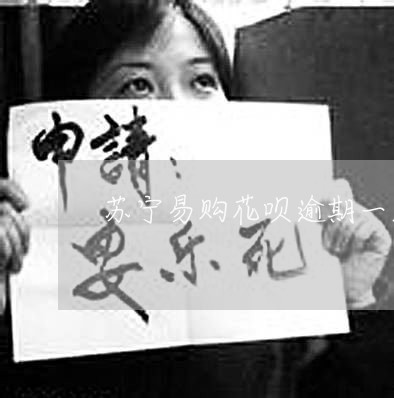 申請：
苏宁易购花呗逾期一
安乐死